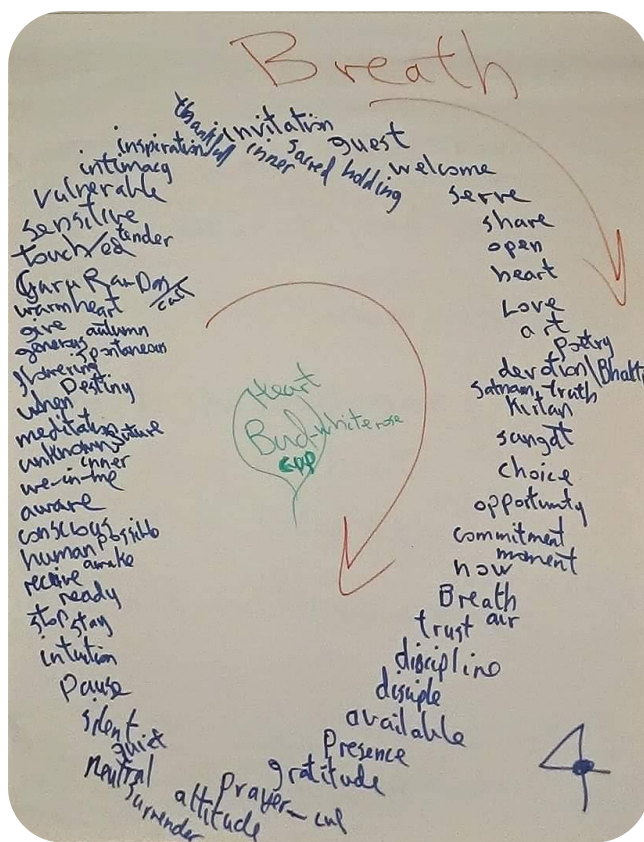 Breath
invitation
guest
inner
sacred holding
welcome
serve
share
open
heart
Love
art
poetry
devotion\Bhakti
satnam, truth
Kirtan
sangat
choice
opportunity
commitment
moment
now
Breath
air
trust
discipline
disiple
available
Presence
gratitude
Prayer-
attitude
surrender
neutral
quiet
silent
Pause
intuition
stop stay
ready
receive
awake
human possible
conscious
aware
we-in-me
inner
unknown
meditation
when
Destiny
flowering
spontaneous
generous
give autumn
warmheart
touch/ed
tender
sensitive
vulnerable
intimacy
inspirational
thankful
Heart
Bud-white rose
cup
4